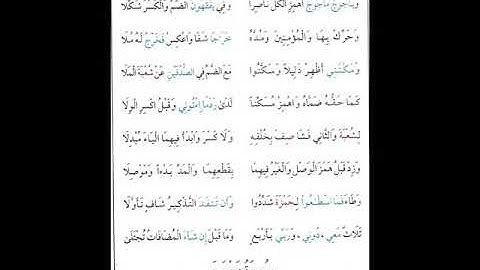 وَيَأْجُوجَ مَأْجُوجَ اهْمِزِ الْكُلَّ نَاصِرًا وَفِي يَفْقَهُونَ الضَّمُّ وَالْكَسْرُ شُكِّلَا
وَحَرِّكْ بِهَا وَالْمُؤْمِنِينَ وَمُدَّهُ خَرَاجًا شَفَا وَاعْكِسْ فَخَرْجُ لَهُ مُلَا
وَمَكَّنَنِي أَظْهِرْ دَلِيلًا وَسَكَّنُوا مَعَ الضَّمِّ فِي الصُّدْفَيْنِ عَنْ شُعْبَةَ الْمَلَا
كَمَا حَقُّهُ ضَمَّاهُ وَاهْمِزْ مُسَكِّنًا لَدَى رَدْمًا ائْتُونِي وَقَبْلُ اكْسِرِ الْوِلَا
لِشُعْبَةَ وَالثَّانِي فَشَا صِفْ بِخُلْفِهِ وَلَا كَسْرَ وَابْدَأْ فِيهِمَا الْيَاءَ مُبْدِلَا
وَزِدْ قَبْلُ هَمْزَ الْوَصْلِ وَالْغَيْرُ فِيهِمَا بِقَطْعِهِمَا وَالْمَدِّ بَدْءًا وَمَوْصِلَا
وَطَاءَ فَمَا اسْطَاعُوا لِحَمْزَةَ شَدِّدُوا وَأَن تَنفَدَ التَّذْكِيرُ شَافٍ تَأَوَّلَا
ثَلَاثٌ مَعِي، دُونِي، وَرَبِّي بِأَرْبَعٍ وَمَا قَبْلَ إِن شَاءَ الْمُضَافَاتُ تُجْتَلَى